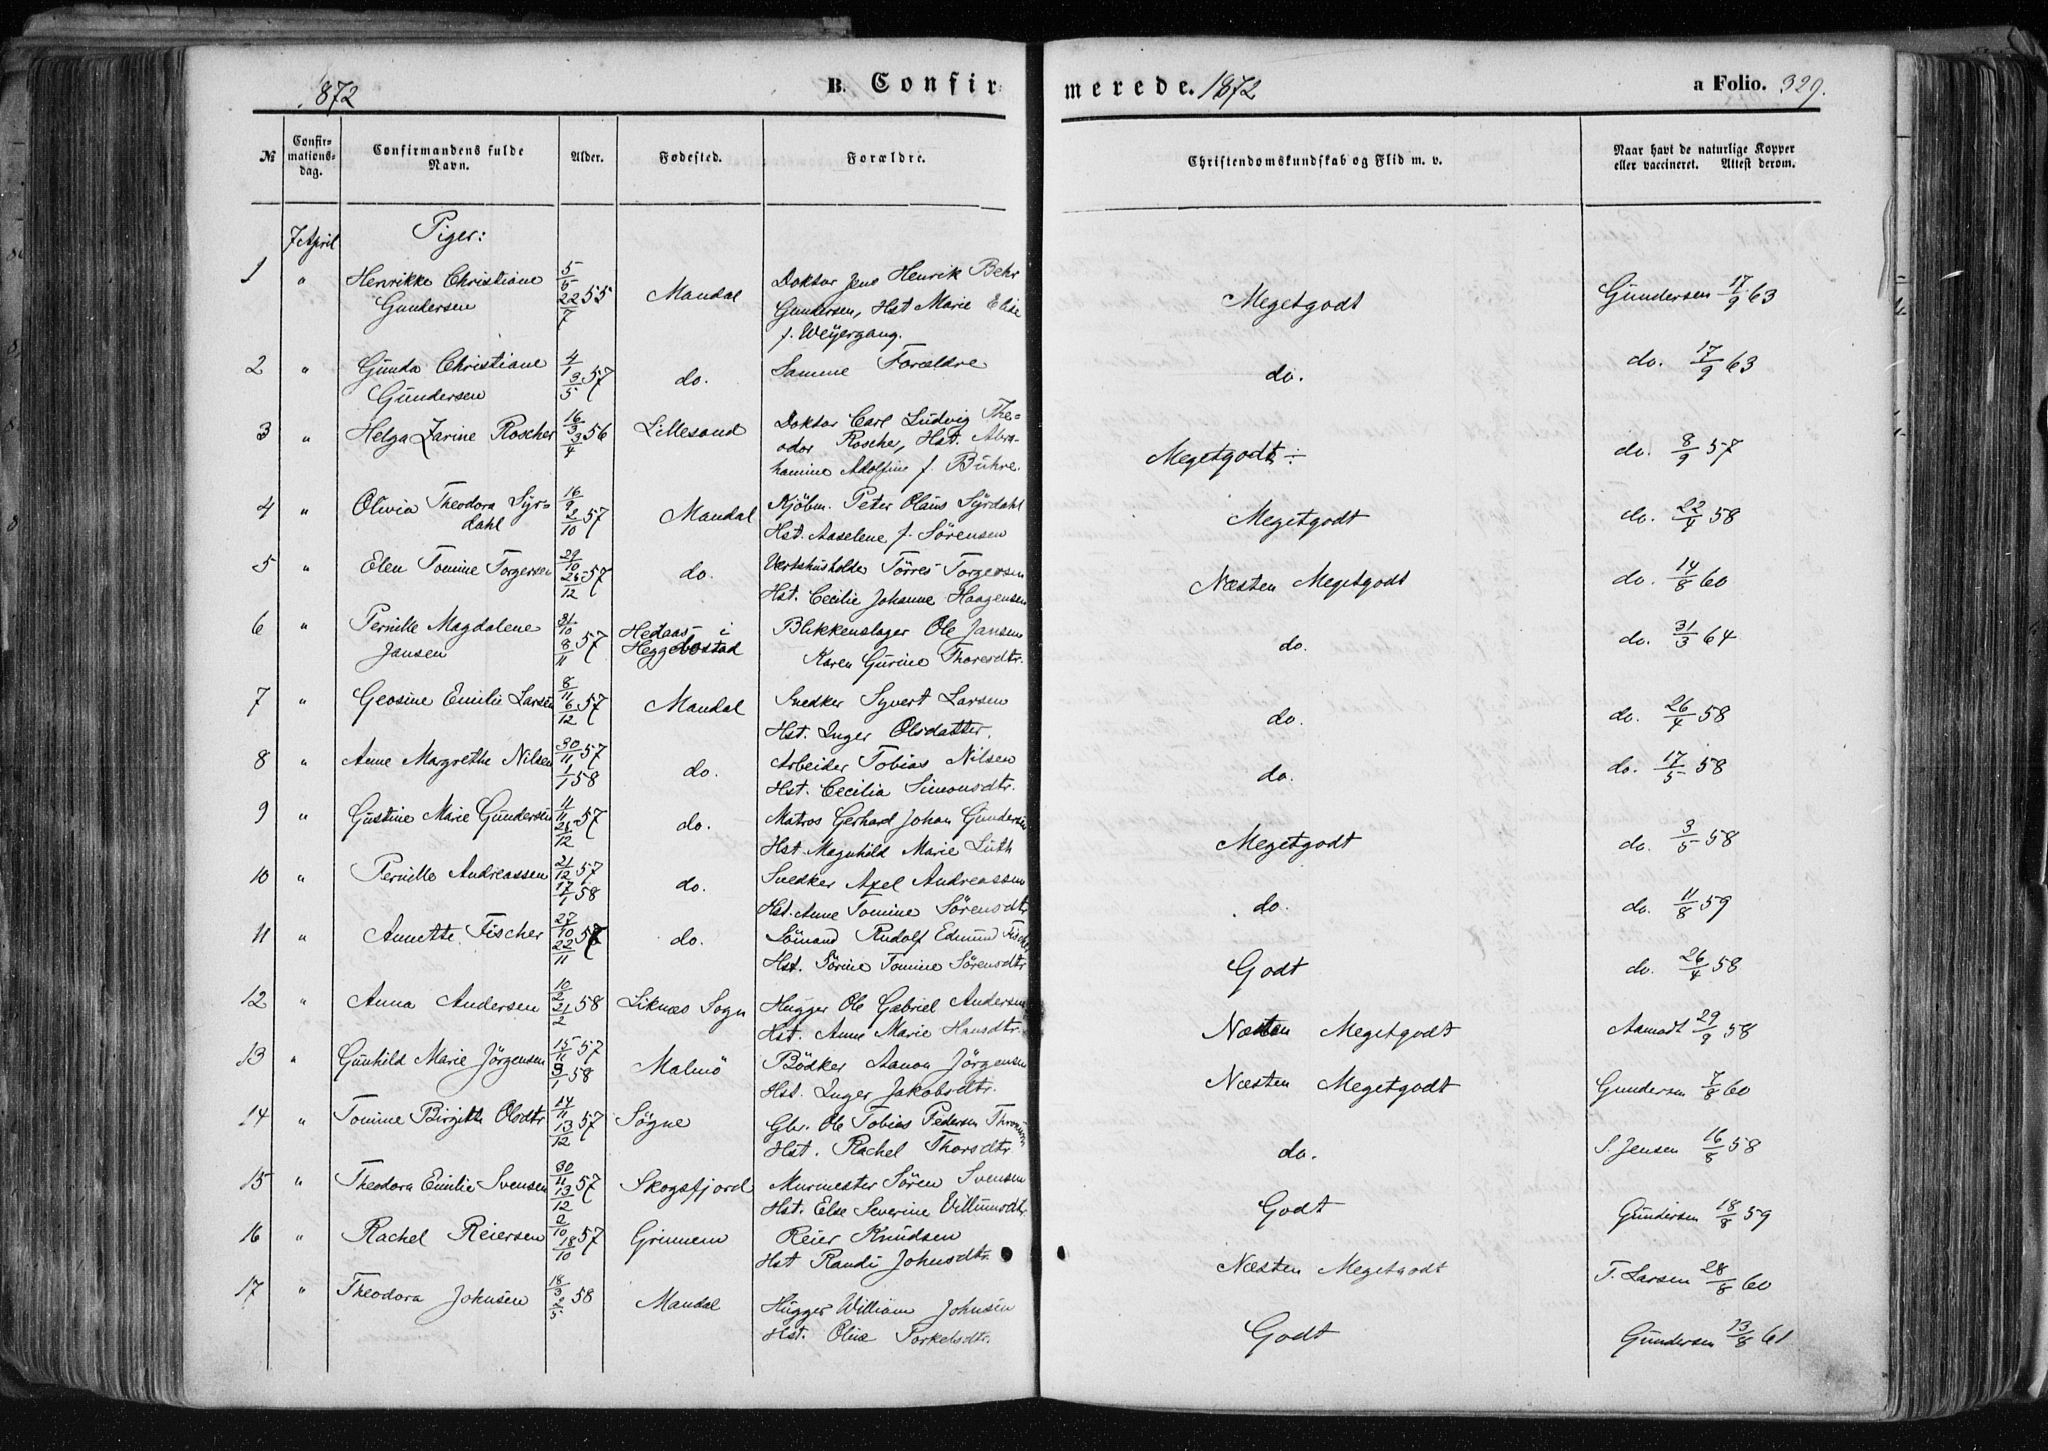 1872 B. Confirmerede. 1872 a Folio. 329.
№ Confirmationsdag. Confirmandens fulde Navn. Alder. Fødested. Forældre. Christendomskundskab og Flid m. v. Naar havt de naturlige Kopper eller vaccineret. Attest derom.
7 April Piger:
1 " Henrikke Christiane 5/5 55 Mandal Doktor Jens Henrik Behr Megetgodt Gundersen 17/9 63
Gundersen 22/7 Gundersen, Hst Marie Elise
f. Weyergang.
2 " Gunda Christiane 4/1 57 do. Samme Forældre do. do. 17/9 63
Gundersen 3/5
3 " Helga Zarine Roscher 16/3 56 Lillesand Doktor Carl Ludvig The= Megetgodt ÷ do. 8/9 57
3/4 odor Roscher, Hst. Abra-
hamine Adolfine f. Buhre.
4 " Olivia Theodora Syr- 16/9 57 Mandal Kjøbm. Peter Olaus Syrdahl Megetgodt do. 22/4 58
dahl 2/10 Hst. Aaselene f. Sörensen
5 " Elen Tomine Torgersen 29/10 57 do. Vertshusholder Törres Torgersen Næsten Megetgodt do. 14/8 60
26/12 Hst. Cecilie Johanne Haagensen
6 " Pernille Magdalene 31/10 57 Hedaas i Blikkenslager Ole Jansen do. do. 31/3 64
Jansen 8/11 Heggebostad Karen Gurine Thoresdtr.
7 " Geosine Emilie Larsen 8/11 57 Mandal Snedker Syvert Larsen do. do. 26/4 58
6/12 Hst. Inger Olsdatter.
8 " Anne Margrethe Nilsen 30/11 57 do. Arbeider Tobias Nilsen do. do. 17/5 58
1/1 58 Hst. Cecilia Simonsdtr.
9 " Gustine Marie Gundersen 4/11 57 do. Matros Gerhard Johan Gundersen Megetgodt do. 3/5 58
26/12 Hst. Magnhild Marie Luth
10 " Pernille Andreassen 21/12 57 do. Snedker Axel Andreassen do. do. 11/8 59
17/1 58 Hst. Anne Tomine Sörensdtr
11 " Annette Fischer 27/10 57 do. Sömand Rudolf Edmund Fischer Godt do. 26/4 58
22/11 Hst. Sörine Tomine Sörensdtr
12 " Anna Andersen 10/2 58 Liknæs Sogn Hugger Ole Gabriel Andersen Næsten Megetgodt Aamodt 29/9 58
21/2 Hst. Anne Marie Hansdtr.
13 " Gunhild Marie Jörgensen 15/11 57 Malmö Bödker Aanon Jörgensen Næsten Megetgodt Gundersen 7/8 60
3/1 58 Hst. Inger Jakobsdtr.
14 " Tomine Birgitte Olsdtr 14/11 57 Sögne Gbr. Ole Tobias Pedersen do. S. Jensen 16/8 58
13/12 Hst. Rachel Thorsdtr
15 " Theodora Emilie Svensen 30/11 57 Skogsfjord Murmester Sören Svensen Godt Gundersen 18/8 59
13/12 Hst. Else Severine Villumsdtr
16 " Rachel Reiersen 2/10 57 Grinnem Reier Knudsen Næsten Megetgodt T. Larsen 28/8 60
18/10 Hst Randi Johnsdtr.
17 " Theodora Johnsen 18/3 58 Mandal Hugger William Johnsen Godt Gundersen 13/8 61
2/5 Hst. Olene Torkelsdtr.